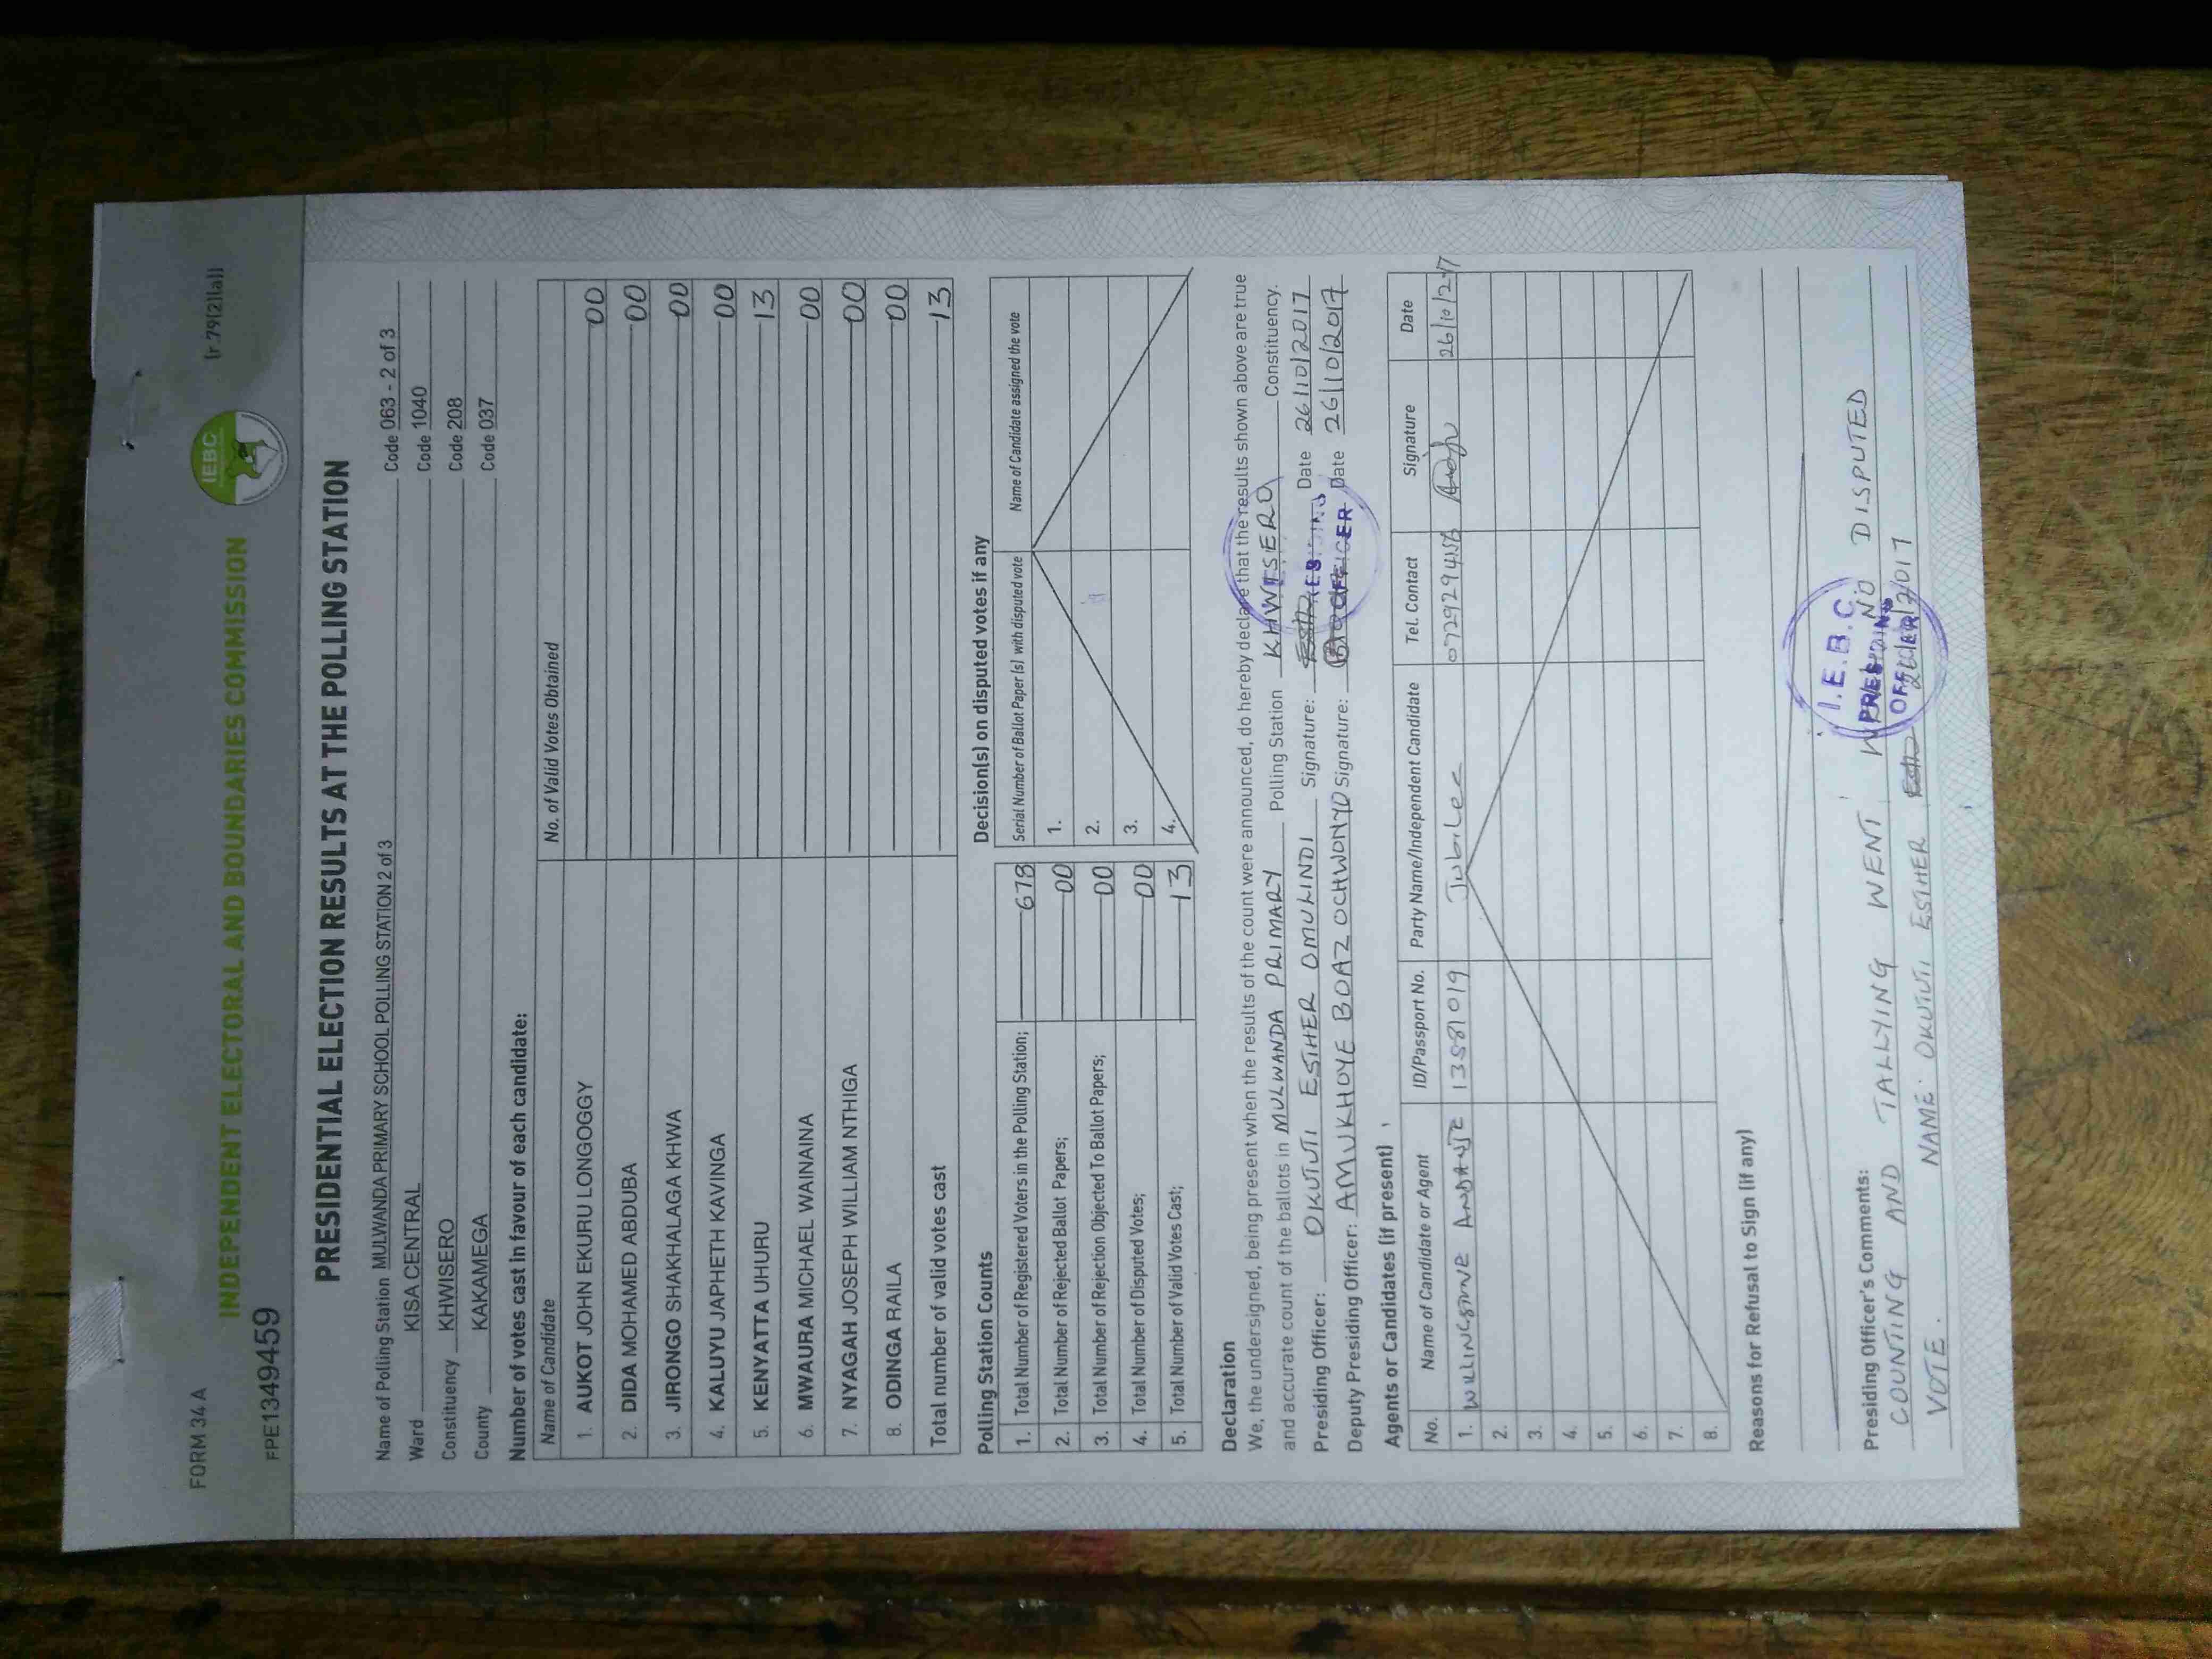 FORM 34 A (r.79(2)(a))
INDEPENDENT ELECTORAL AND BOUNDARIES COMMISSION
IEBC
FPE1349459
PRESIDENTIAL ELECTION RESULTS AT THE POLLING STATION
Name of Polling Station MULWANDA PRIMARY SCHOOL POLLING STATION 2 of 3 Code 063 - 2 of 3
Ward KISA CENTRAL Code 1040
Constituency KHWISERO Code 208
County KAKAMEGA Code 037
Number of votes cast in favour of each candidate:
Name of Candidate No. of Valid Votes Obtained
1. AUKOT JOHN EKURU LONGOGGY 00
2. DIDA MOHAMED ABDUBA 00
3. JIRONGO SHAKHALAGA KHWA 00
4. KALUYU JAPHETH KAVINGA 00
5. KENYATTA UHURU 13
6. MWAURA MICHAEL WAINAINA 00
7. NYAGAH JOSEPH WILLIAM NTHIGA 00
8. ODINGA RAILA 00
Total number of valid votes cast 13
Polling Station Counts
1. Total Number of Registered Voters in the Polling Station; 678
2. Total Number of Rejected Ballot Papers; 00
3. Total Number of Rejection Objected To Ballot Papers; 00
4. Total Number of Disputed Votes; 00
5. Total Number of Valid Votes Cast; 13
Decision(s) on disputed votes if any
Serial Number of Ballot Paper (s) with disputed vote Name of Candidate assigned the vote
1.
2.
3.
4.
Declaration
We, the undersigned, being present when the results of the count were announced, do hereby declare that the results shown above are true
and accurate count of the ballots in MULWANDA PRIMARY Polling Station KHWISERO Constituency.
Presiding Officer: OKUTUTI ESTHER OMULINDI Signature: Date 26/10/2017
Deputy Presiding Officer: AMUKHOYE BOAZ OCHWONYO Signature: Date 26/10/2017
PRESIDING
OFFICER
Agents or Candidates (if present)
No. Name of Candidate or Agent ID/Passport No. Party Name/Independent Candidate Tel. Contact Signature Date
1. 13581019 Jubilee 26/10/2017
2.
3.
4.
5.
6.
7.
8.
Reasons for Refusal to Sign (if any)
Presiding Officer's Comments:
COUNTING AND TALLYING WENT NO DISPUTED
VOTE. NAME: OKUTUTI ESTHER
I.E.B.C.
PRESIDING
OFFICER